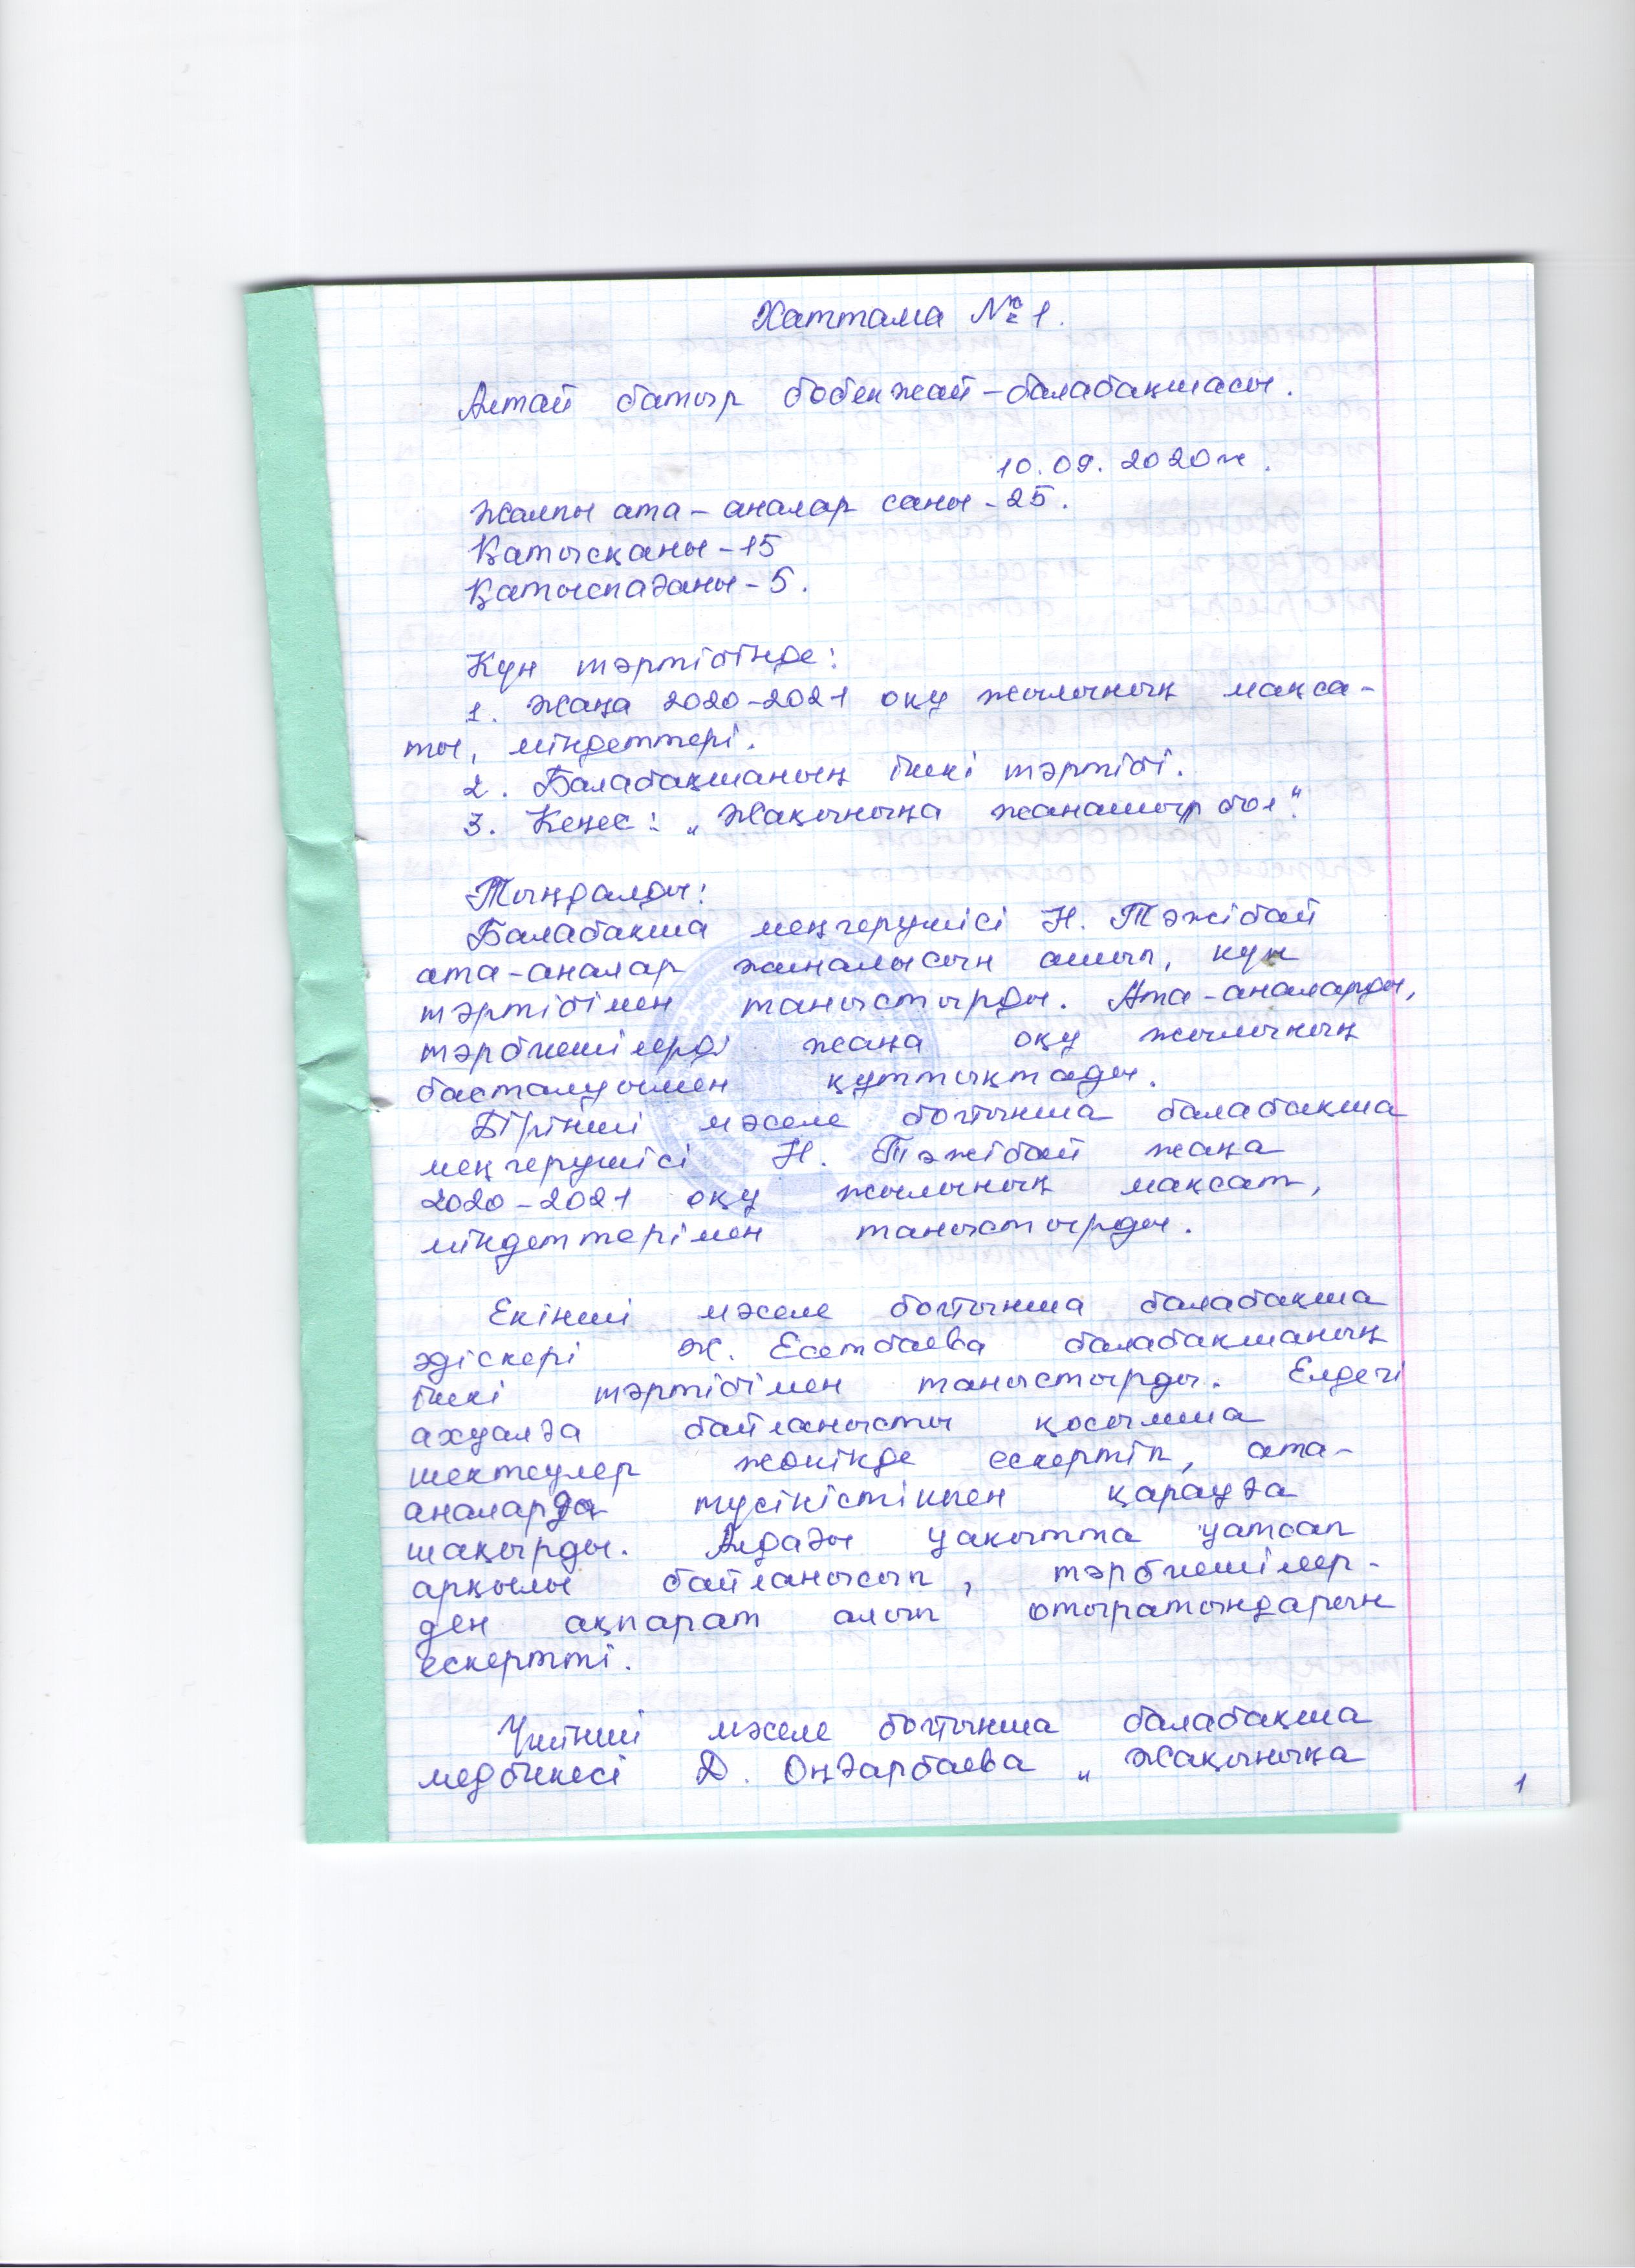 Хаттама № 1.
Алтай батыр бөбекжай-балабақшасы.
10.09.2020ж.
Жалпы ата-аналар саны-25.
Қатысқаны-15
Қатыспағаны-5.
Күн тәртібінде:
1. Жаңа 2020-2021 оқу жылының мақса-
ты, міндеттері.
2. Балабақшаның ішкі тәртібі.
3. Кеңес: „Жақыныңа жанашыр бол“.
Тыңдалды:
Балабақша меңгерушісі Н. Тәжібай
ата-аналар жиналысын ашып, күн
тәртібімен таныстырды. Ата-аналарды,
тәрбиешілерді жаңа оқу жылының
басталуымен құттықтады.
Бірінші мәселе бойынша балабақша
меңгерушісі Н. Тәжібай жаңа
2020-2021 оқу жылының мақсат,
міндеттерімен таныстырды.
Екінші мәселе бойынша балабақша
әдіскері Ж. Есетбаева балабақшаның
ішкі тәртібімен таныстырды. Елдегі
ахуалға байланысты қосымша
шектеулер жөнінде ескертіп, ата-
аналарды түсіністікпен қарауға
шақырды. Алдағы уақытта уатсап
арқылы байланысып, тәрбиешілер-
ден ақпарат алып отыратындарын
ескертті.
Үшінші мәселе бойынша балабақша
медбикесі Д. Оңғарбаева „Жақыныңа
1